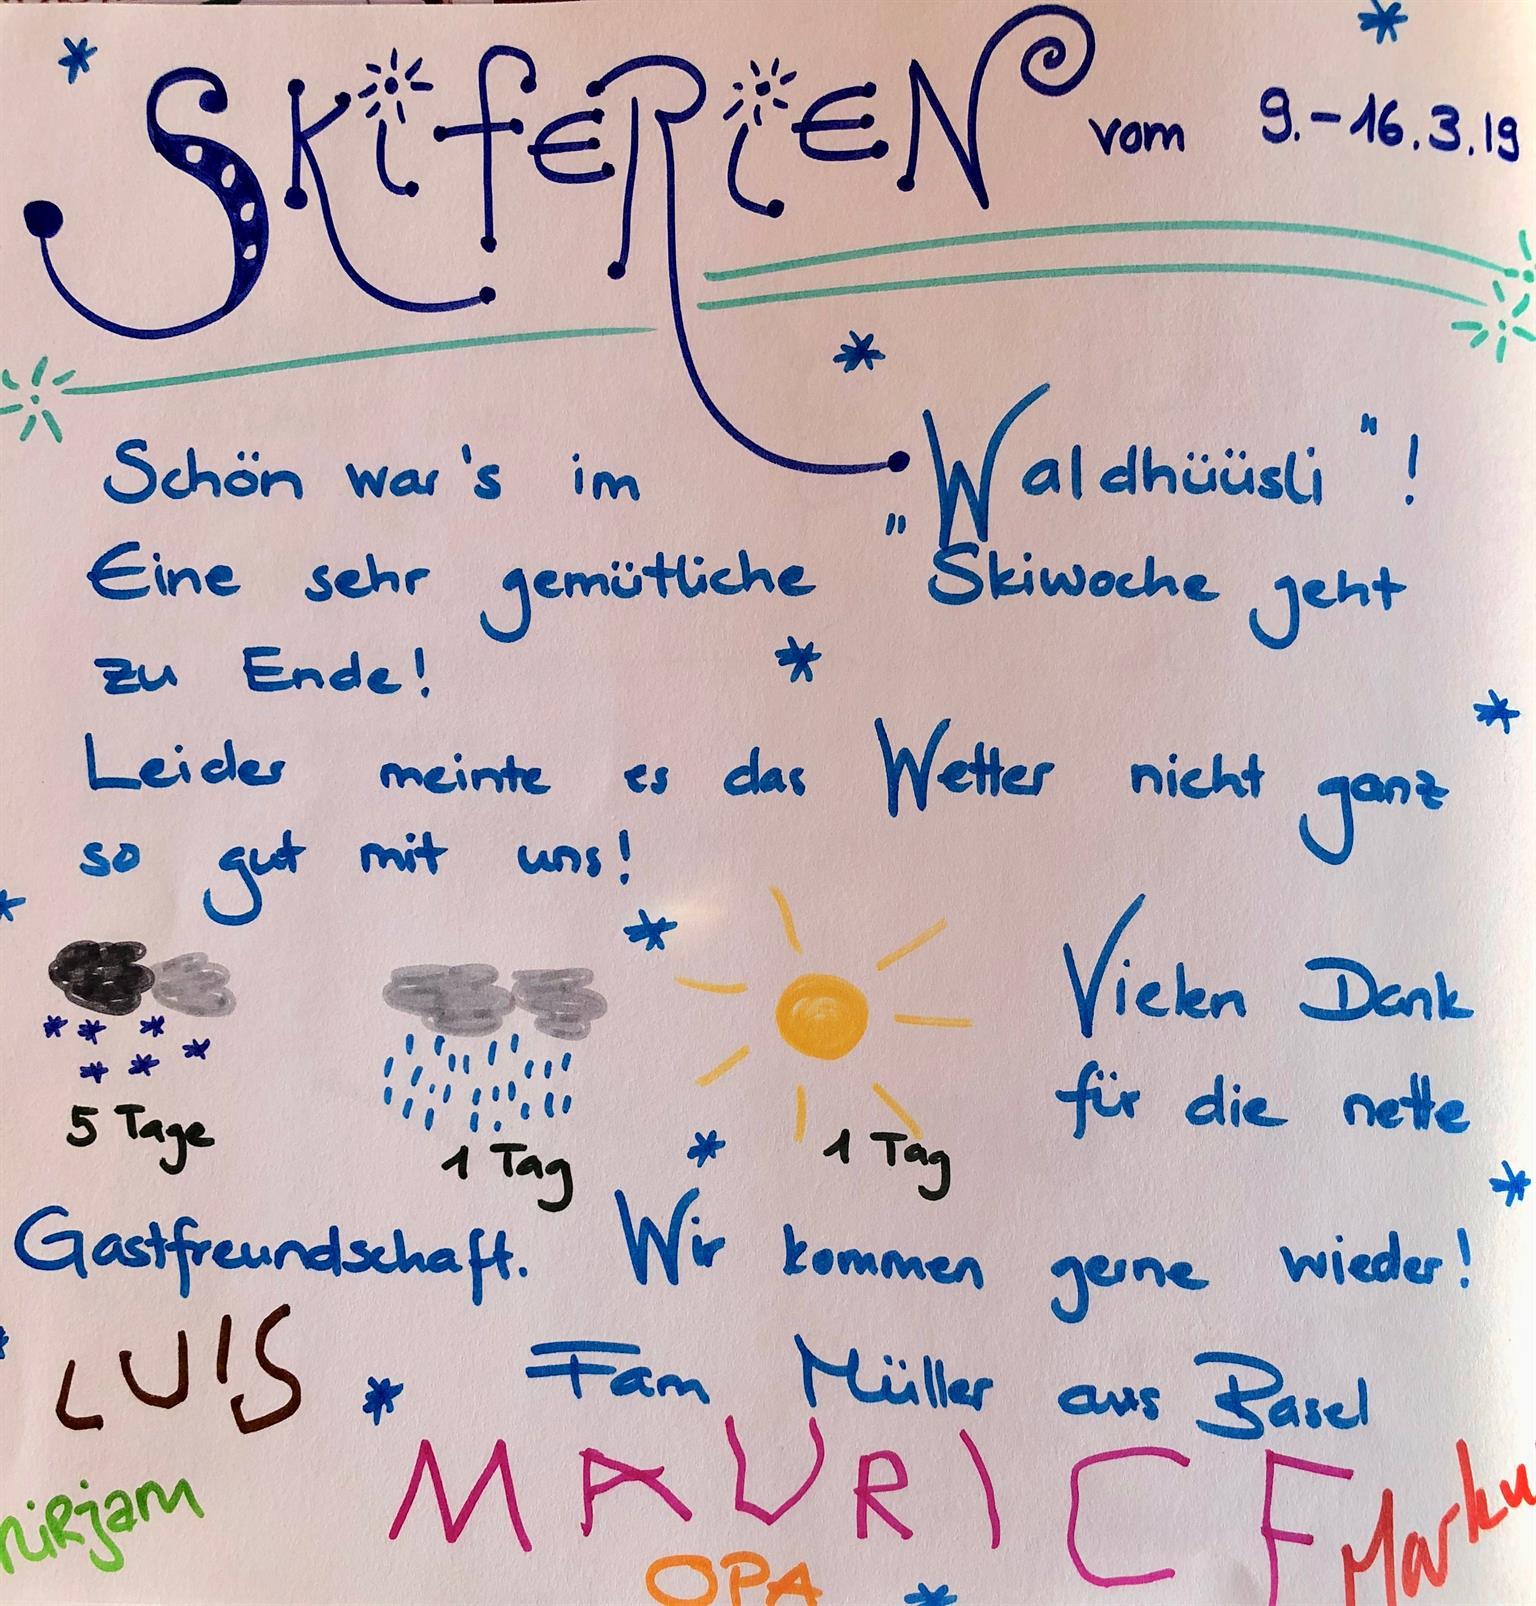 SKifeRiEN vom 9.-16.3.19
Schön war's im „Waldhüüsli"!
Eine sehr gemütliche Skiwoche geht
zu Ende!
Leider meinte es das Wetter nicht ganz
so gut mit uns!
5 Tage
1 Tag
1 Tag
Vielen Dank
für die nette
Gastfreundschaft. Wir kommen gerne wieder!
LUIS
Fam Müller aus Basel
MiRjam
MAURICE
Marku
OPA